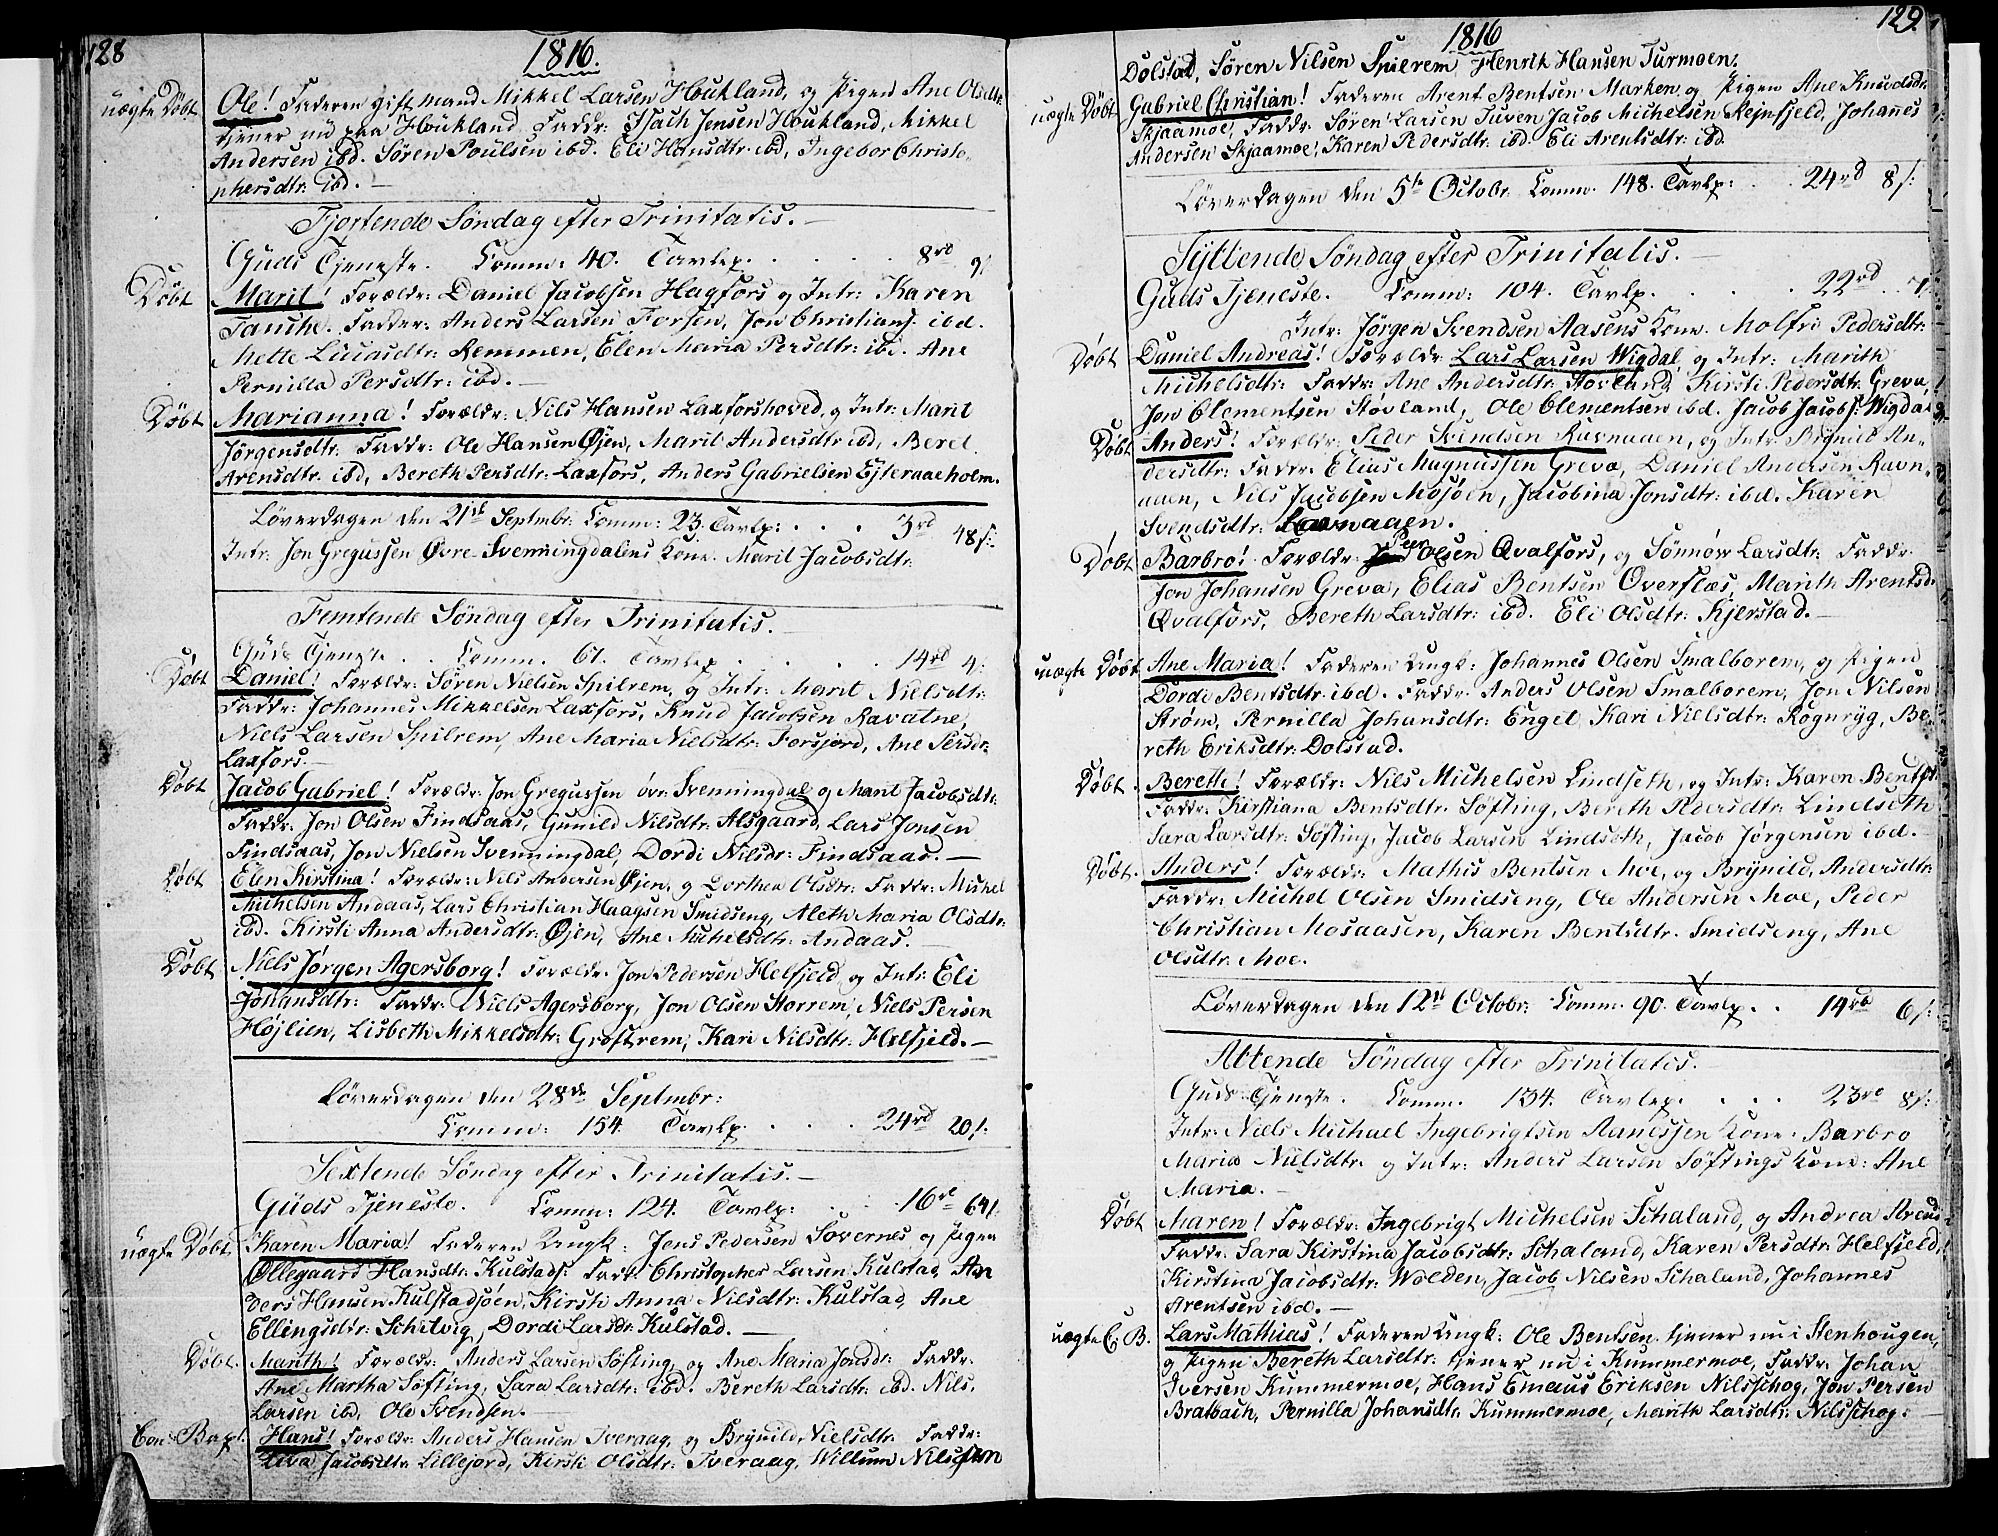 128
1816.
uægte Døbt Ole! Faderen gift mand Mikkel Larsen Houkland, og Pigen Ane Olsdtr:
tjener nu paa Houkland. Faddr: Isach Jensen Houkland, Mikkel
Andersen ibd. Søren Poulsen ibd. Eli Hansdtr: ibd, Ingebor Christo-
phersdtr: ibd.
Fjortende Søndag efter Trinitatis.
Guds Tjeneste. Comm: 40. Tavlep. . . . 8rd 9/
Døbt Marit! Forældr: Daniel Jacobsen Hagfors og Intr: Karen
Tanche. Fadder: Anders Larsen Forsen, Jon Christians. ibd.
Mette Lucasdtr: Remmen, Elen Maria Persdtr: ibd. Ane
Pernilla Persdtr: ibd.
Døbt Marianna! Forældr: Nils Hansen Laxforshoved, og Intr: Marit
Jørgensdtr: Faddr: Ole Hansen Øjen, Marit Andersdtr ibd, Beret
Arensdtr: ibd, Bereth Persdtr: Laxfors, Anders Gabrielsen Ejteraaeholm.
Løverdagen den 21st Septmbr: Comm: 23. Tavlp: . . . 3rd 48/:
Intr: Jon Gregussen Øvre Svenningdalens Kone Marit Jacobsdtr:
Femtende Søndag efter Trinitatis.
Guds Tjeneste . . Comm. 67. Tavlep . . . . 14rd 4/:
Døbt Daniel! Forældr: Søren Nielsen Spilrem, og Intr: Marit Nielsdtr:
Faddr: Johannes Mikkelsen Laxfors, Knud Jacobsen Ravatne,
Niels Larsen Spilrem, Ane Maria Nielsdtr: Forsjord, Ane Persdr:
Laxfors.
Døbt Jacob Gabriel! Forældr: Jon Gregussen øvr: Svenningdal og Marit Jacobsdtr:
Faddr: Jon Olsen Findsaas, Gunild Nilsdtr: Alsgaard, Lars Jonsen
Findsaas, Jon Nielsen Svenningdal, Dordi Nilsdr: Findsaas.
Døbt Elen Kirstina! Forældr: Nils Andersen Øjen, og Dorthea Olsdtr: Faddr: Mickel
Michelsen Andaas, Lars Christian Haagsen Smidseng, Aleth Maria Olsdtr:
ibd. Kirsti Anna Andersdtr: Øjen, Ane Michelsdtr: Andaas.
Døbt Niels Jørgen Agersborg! Forældr. Jon Pedersen Helfjeld og Intr: Eli
Johansdtr: Faddr: Niels Agersborg, Jon Olsen Storrem, Niels Persen
Højlien, Lisbeth Mikkelsdtr: Groftrem, Kari Nilsdtr: Helfjeld.
Løverdagen den 28de Septmbr:
Comm: 154. Tavlp. . . . 24rd 20/:
Sextende Søndag efter Trinitatis.
Guds Tjeneste. Comm: 124. Tavlp: . . 16rd 64/
uægte Døbt. Karen Maria! Faderen Ungk: Jens Pedersen Sovernes og Pigen
Ollegaard Hansdtr: Kulstads. Fadr: Christopher Larsen Kulstad, An
ders Hansen Kulstadsjøen, Kirsti Anna Nilsdtr: Kulstad, Ane
Ellingsdtr: Schitvig, Dordi Larsdr: Kulstad.
Døbt. Marith! Forældr: Anders Larsen Søfting, og Ane Maria Jonsdr: Faddr:
Ane Martha Søfting, Sara Larsdtr: ibd. Bereth Larsdtr: ibd. Nils
Larsen ibd, Ole Svendsen.
Con: Bapt. Hans! Forældr: Anders Hansen Tveraag, og Brynild Nielsdtr: Faddr:
Jacobsdtr: Lillejord, Kirsti Olsdtr: Tveraag, Willum Nilsen
129.
1816
Dolstad, Søren Nilsen Spierem, Henrik Hansen Turmoen.
uægte Døbt Gabriel Christian! Faderen Arent Bentsen Marken, og Pigen Ane Knudsdr:
Skjaamoe, Faddr. Søren Larsen Tuven Jacob Michelsen Rejnfjeld, Johanes
Andersen Skjaamoe, Karen Pedersdtr: ibd. Eli Arentsdtr: ibd.
Løverdagen den 5te Octobr. Comm. 148. Tavlp: . . 24rd 8/:
Syttende Søndag efter Trinitatis.
Guds Tjeneste. Comm: 104. Tavlp. . . . 22rd
Intr: Jörgen Svendsen Aasens Kone Molfri Pedersdtr:
Døbt Daniel Andreas! Forældr: Lars Larsen Wigdal, og Intr: Marith
Michelsdtr: Faddr: Ane Andersdtr: Stovland, Kirsti Pedersdtr. Greva,
Jon Clementsen Støvland, Ole Clementsen ibd. Jacob Jacobs. Wigdal
Døbt Anders! Forældr: Peder Svendsen Ravnaaen, og Intr: Brynild An-
dersdtr: Faddr. Elias Magnussen Greva, Daniel Andersen Ravn-
aaen, Nils Jacobsen Mosjøen, Jacobina Jonsdtr: ibd. Karen
Svendsdtr: Ravnaaen.
Døbt Barbro! Forældr. Peer Olsen Qvalfors, og Sønnøw Larsdtr: Faddr.
Jon Johansen Greva, Elias Bentsen Øverflæs, Marith Arentsd
Qvalfors, Bereth Larsdtr: ibd. Eli Olsdtr: Kjerstad.
uægte Døbt Ane Maria! Faderen Ungk: Johannes Olsen Smalborem, og Pigen
Dordi Bentsdtr: ibd. Faddr: Anders Olsen Smalborem, Jon Nilsen
Strøm, Pernilla Johansdtr: Engel, Kari Nielsdtr: Rognryg, Be-
reth Eriksdtr: Dolstad.
Døbt. Berette! Forældr: Nils Michelsen Lindseth, og Intr: Karen Bentsd.
Faddr: Kirstiana Bentsdtr: Søfting, Bereth Pedersdtr: Lindseth
Sara Larsdtr: Søfting, Jacob Larsen Lindseth, Jacob Jørgensen ibd.
Døbt. Anders! Forældr: Mathis Bentsen Moe, og Brynild Andersdtr:
Faddr: Michel Olsen Smidseng, Ole Andersen Moe, Peder
Christian Mosaasen, Karen Bentsdtr. Smidseng, Ane
Olsdtr: Moe.
Løverdagen den 12te Octobr: Comm. 90. Tavlp. . . 14rd 6/:
Attende Søndag efter Trinitatis.
Guds Tjeneste. Comm. 134. Tavlep. . . . 23rd 8/:
Intr: Niels Michael Ingebrigtsen Kone Barbro
Maria Nielsdtr. og Intr: Anders Larsen Søftings Kone: Ane
Maria.
Døbt Maren! Forældr: Ingebrigt Michelsen Schaland, og Andrea Arends
Faddr: Sara Kirstina Jacobsdtr: Schaland, Karen Persdtr: Helfjeld,
Kirstina Jacobsdtr: Wolden, Jacob Nilsen Schaland, Johannes
Arentsen ibd.
uægte C. B. Lars Mathias! Faderen Ungk: Ole Bentsen tjener nu i Stenhougen,
og Pigen Bereth Larsdtr: tjener nu i Kummermoe, Faddr: Johan
Iversen Kummermoe, Hans Emaus Eriksen Nilsschog, Jon Persen
Bratbach, Pernilla Johansdtr: Kummermoe, Marith Larsdtr: Nilsschog: